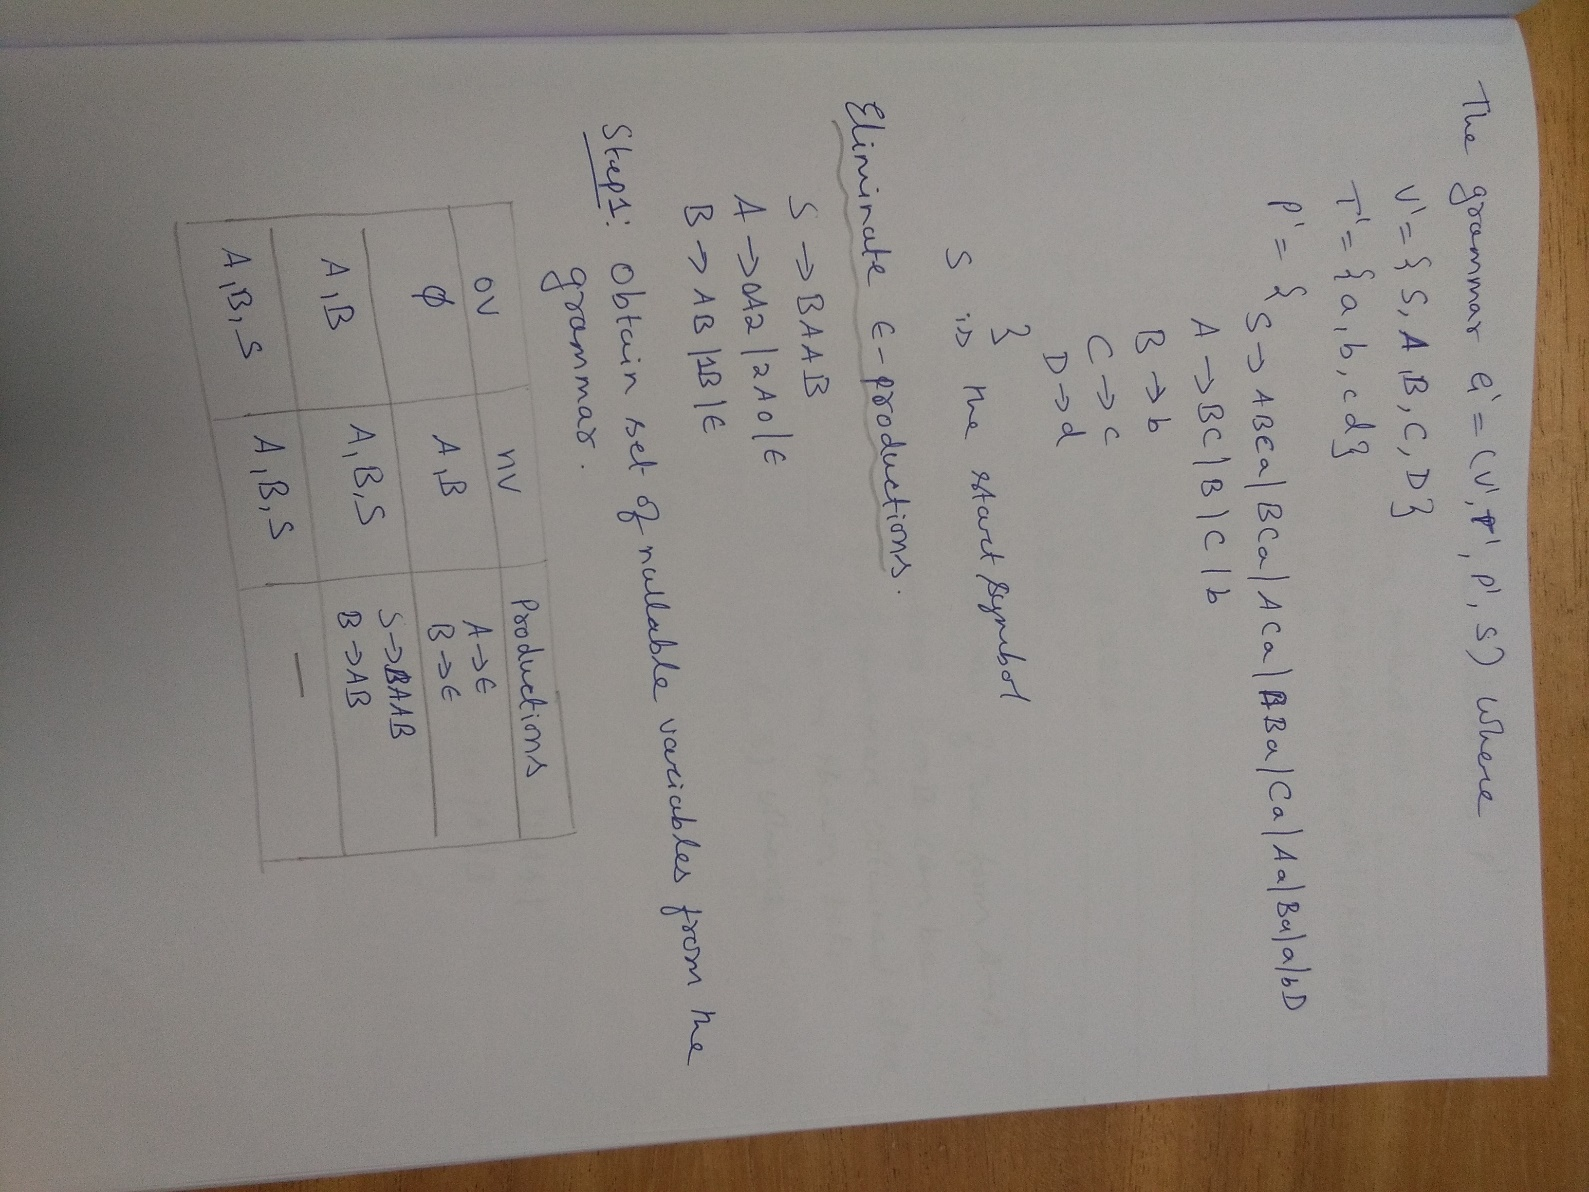 The grammar G' = (V', T', P', S) where
V' = { S, A, B, C, D }
T' = { a, b, c, d }
P' = {
S → ABCa | BCa | ACa | ABa | Ca | Aa | Ba | a | bD
A → BC | B | C | b
B → b
C → c
D → d
}
S is the start symbol
Eliminate ε-productions.
S → BAAB
A → 0A2 | 2A0 | ε
B → AB | 1B | ε
Step1: Obtain set of nullable variables from the
grammar.
OV nV Productions
ϕ A,B A → ε
B → ε
A,B A,B,S S → BAAB
B → AB
A,B,S A,B,S —